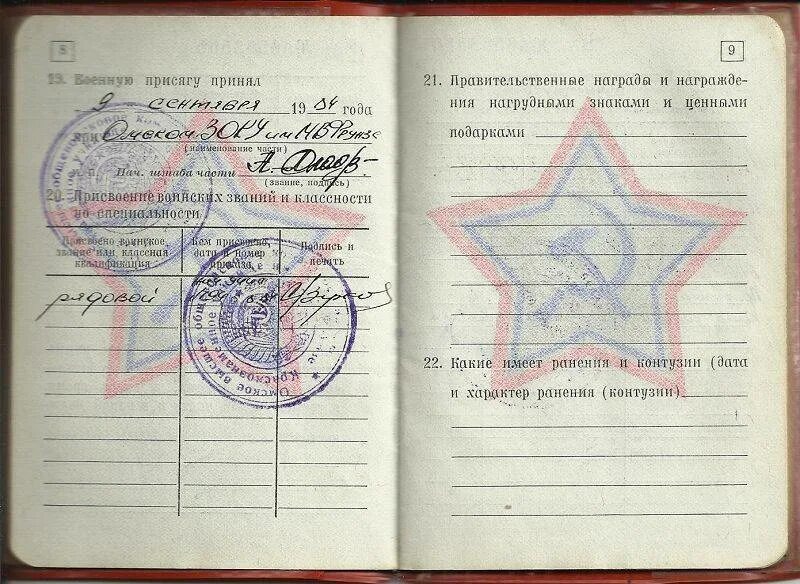 8
19. Военную присягу принял
9 сентября 1984 года
при Омском ЗОКУ им МВ Фрунзе
(наименование части)
М. П. Нач. штаба части
(звание, подпись)
20. Присвоение воинских званий и классности
по специальности
Присвоено воинское звание или классная квалификация
Кем присвоено, дата и номер приказа
Подпись и печать
рядовой
Омское высшее
Краснознаменное
9
21. Правительственные награды и награжде-
ния нагрудными знаками и ценными
подарками
22. Какие имеет ранения и контузии (дата
и характер ранения (контузии)